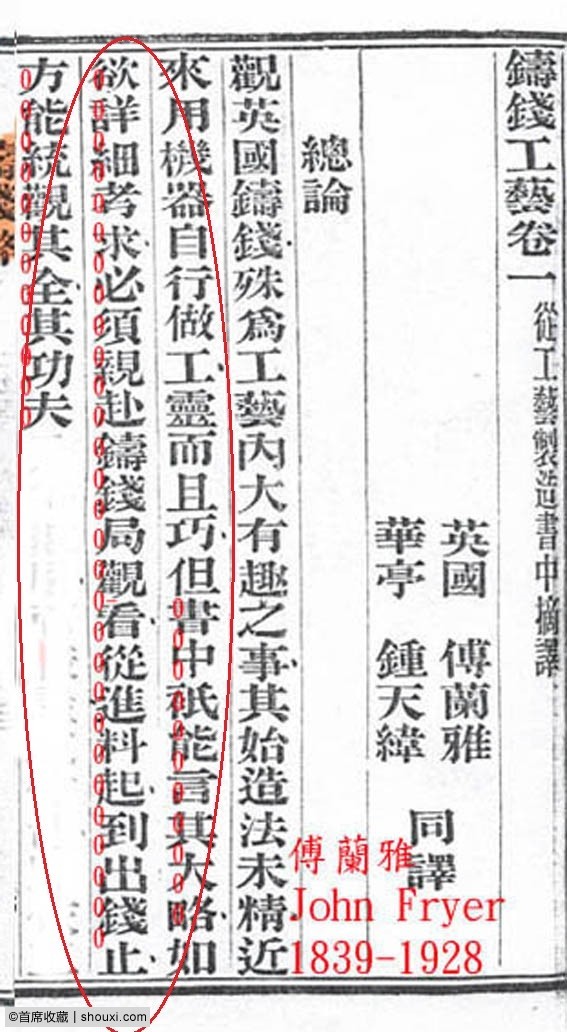 鑄錢工藝卷一 從工藝製造書中摘譯
英國 傅蘭雅
華亭 鍾天緯
同譯
總論
觀英國鑄錢殊爲工藝內大有趣之事其始造法未精近
來用機器自行做工靈而且巧但書中祇能言其大略如
欲詳細考求必須親赴鑄錢局觀看從進料起到出錢止
方能統觀其全其功夫
傅蘭雅
John Fryer
1839-1928
©首席收藏 | shouxi.com